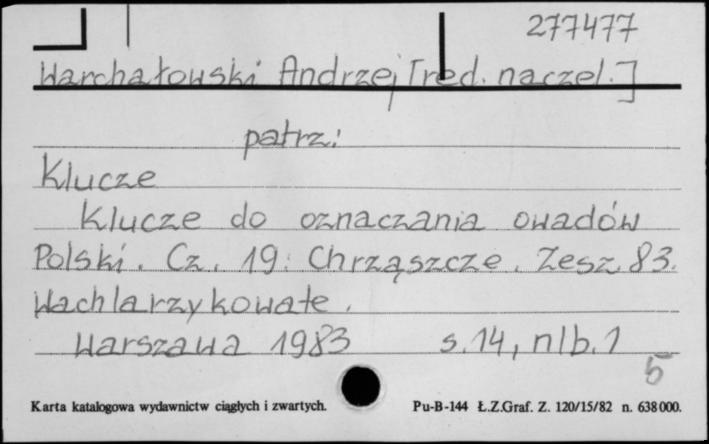 277477
Warchałowski Andrzej [red. naczel.]
patrz:
Klucze
Klucze do oznaczania owadów
Polski. Cz. 19: Chrząszcze. Zesz. 83.
Wachlarzykowate.
Warszawa 1983 s. 14, nlb. 1
5
Karta katalogowa wydawnictw ciągłych i zwartych. Pu-B-144 Ł.Z.Graf. Z. 120/15/82 n. 638000.